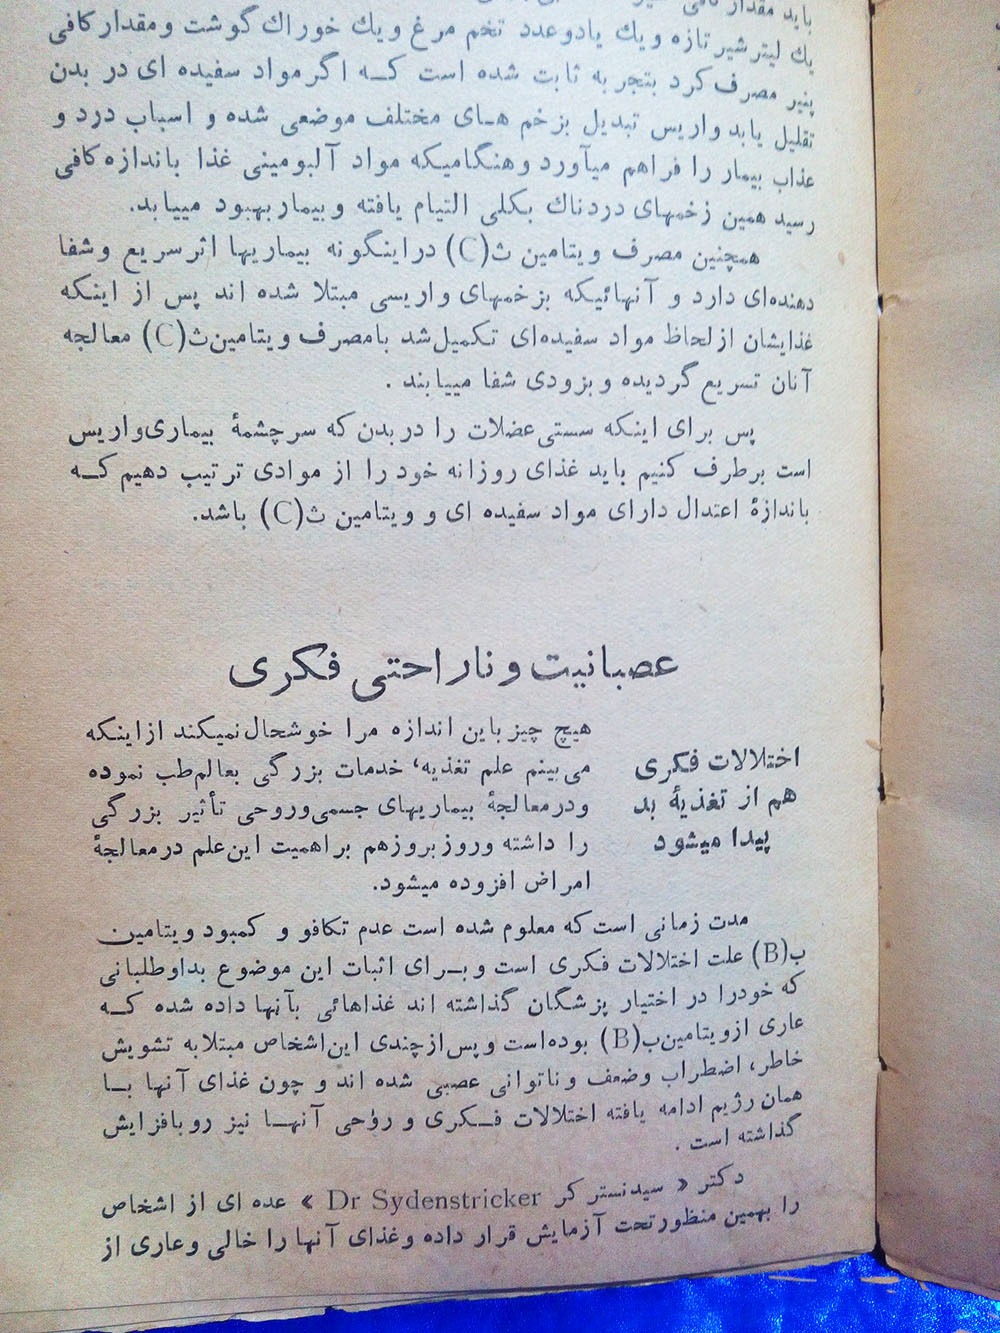 باید مقدار کافی
یك لیتر شیر تازه و یك یا دو عدد تخم مرغ و یك خوراك گوشت و مقدار کافی
پنیر مصرف کرد بتجربه ثابت شده است کـه اگر مواد سفیده ای در بدن
تقلیل یابد واریس تبدیل بزخم هـای مختلف موضعی شده و اسباب درد و
عذاب بیمار را فراهم میآورد وهنگامیکه مواد آلبومینی غذا باندازه کافی
رسید همین زخمهای دردناك بکلی التیام یافته و بیمار بهبود مییابد.
همچنین مصرف ویتامین ث(C) در اینگونه بیماریها اثر سریع وشفا
دهنده‌ای دارد و آنهائیکه بزخمهای واریسی مبتلا شده اند پس از اینکه
غذایشان از لحاظ مواد سفیده‌ای تکمیل شد با مصرف ویتامین ث(C) معالجه
آنان تسریع گردیده و بزودی شفا مییابند .
پس برای اینکه سستی عضلات را در بدن که سرچشمهٔ بیماری واریس
است برطرف کنیم باید غذای روزانه خود را از موادی ترتیب دهیم کـه
باندازهٔ اعتدال دارای مواد سفیده ای و ویتامین ث(C) باشد.
عصبانیت و ناراحتی فکری
اختلالات فکری
هم از تغذیهٔ بد
پیدا میشود
هیچ چیز باین اندازه مرا خوشحال نمیکند از اینکه
می‌بینم علم تغذیه، خدمات بزرگی بعالم طب نموده
ودر معالجهٔ بیماریهای جسمی وروحی تأثیر بزرگی
را داشته وروز بروز هم بر اهمیت این علم در معالجهٔ
امراض افزوده میشود.
مدت زمانی است که معلوم شده است عدم تکافو و کمبود ویتامین
ب(B) علت اختلالات فکری است و بـرای اثبات این موضوع بداوطلبانی
که خودرا در اختیار پزشگان گذاشته اند غذاهائی بآنها داده شده کـه
عاری از ویتامین ب(B) بوده است و پس از چندی این اشخاص مبتلا به تشویش
خاطر، اضطراب وضعف و ناتوانی عصبی شده اند و چون غذای آنها بـا
همان رژیم ادامه یافته اختلالات فـکری و روحی آنهـا نیز رو بافزایش
گذاشته است .
دکتر « سیدنستر کر Dr Sydenstricker » عده ای از اشخاص
را بهمین منظور تحت آزمایش قرار داده وغذای آنها را خالی وعاری از